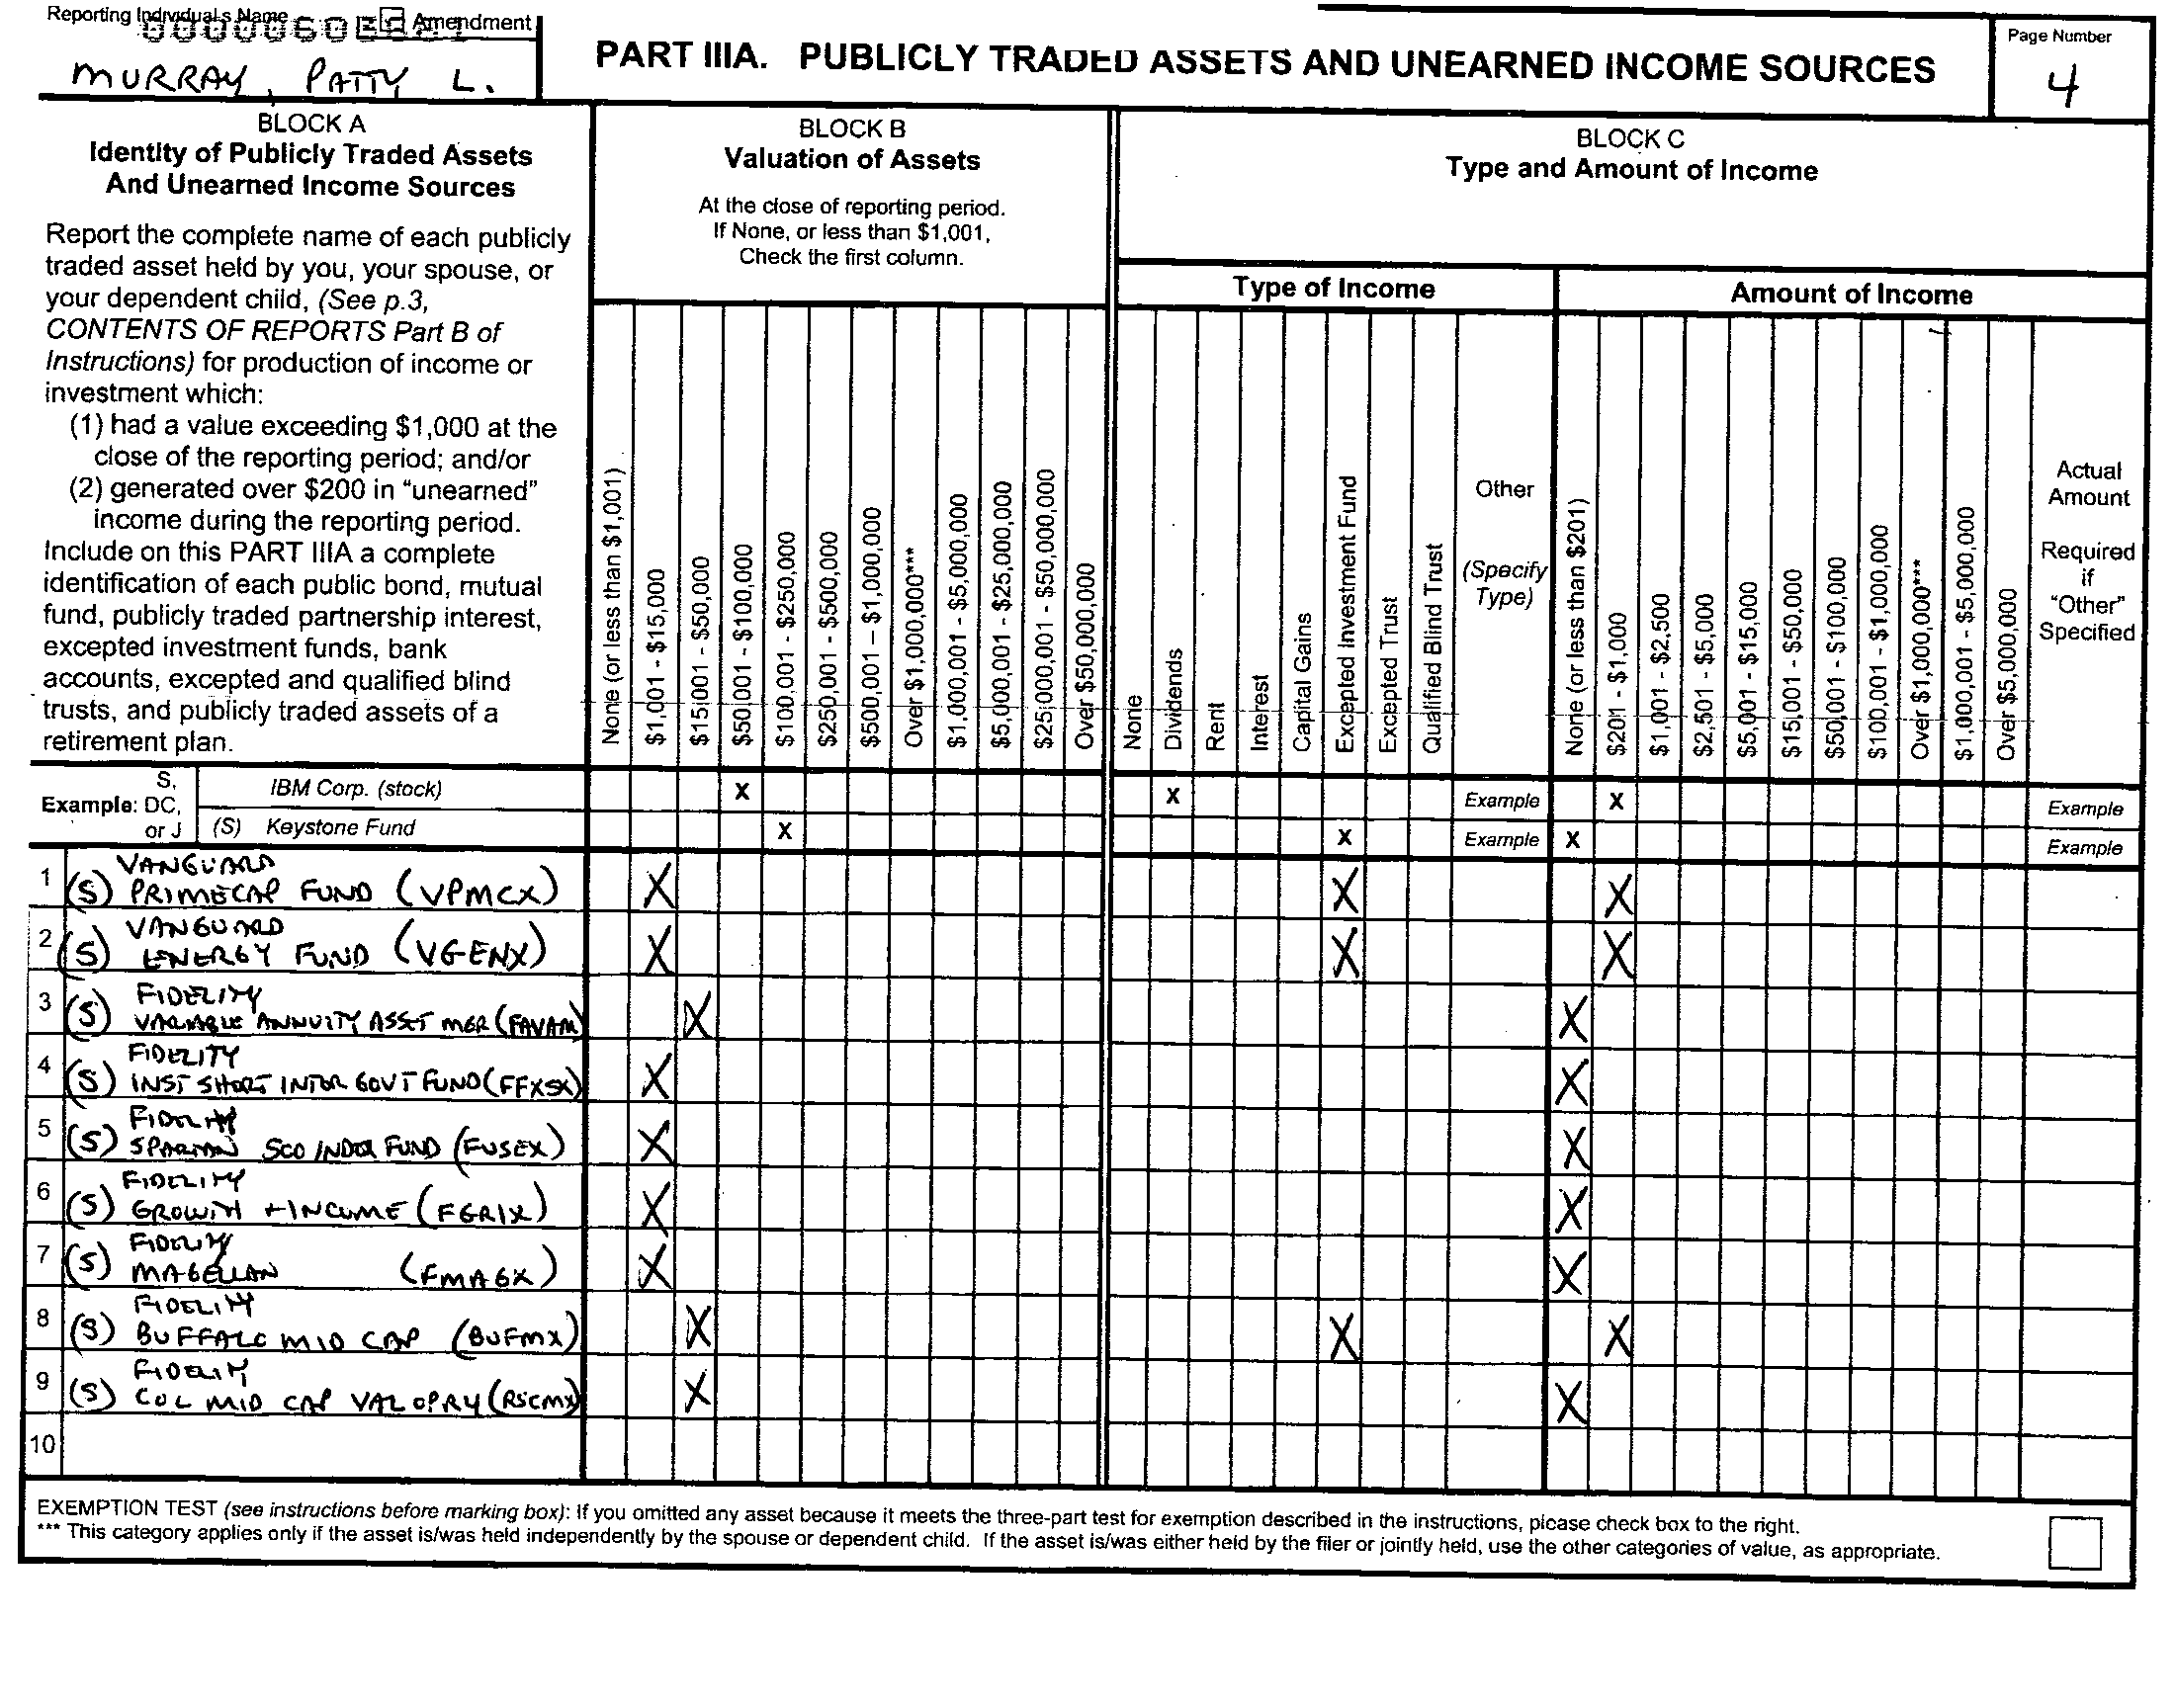 Reporting Individual's Name
Amendment
MURRAY, PATTY L.
PART IIIA. PUBLICLY TRADED ASSETS AND UNEARNED INCOME SOURCES
Page Number
4
BLOCK A
Identity of Publicly Traded Assets
And Unearned Income Sources
Report the complete name of each publicly
traded asset held by you, your spouse, or
your dependent child, (See p.3,
CONTENTS OF REPORTS Part B of
Instructions) for production of income or
investment which:
(1) had a value exceeding $1,000 at the
close of the reporting period; and/or
(2) generated over $200 in "unearned"
income during the reporting period.
Include on this PART IIIA a complete
identification of each public bond, mutual
fund, publicly traded partnership interest,
excepted investment funds, bank
accounts, excepted and qualified blind
trusts, and publicly traded assets of a
retirement plan.
BLOCK B
Valuation of Assets
At the close of reporting period.
If None, or less than $1,001,
Check the first column.
None (or less than $1,001)
$1,001 - $15,000
$15,001 - $50,000
$50,001 - $100,000
$100,001 - $250,000
$250,001 - $500,000
$500,001 – $1,000,000
Over $1,000,000***
$1,000,001 - $5,000,000
$5,000,001 - $25,000,000
$25,000,001 - $50,000,000
Over $50,000,000
BLOCK C
Type and Amount of Income
Type of Income
None
Dividends
Rent
Interest
Capital Gains
Excepted Investment Fund
Excepted Trust
Qualified Blind Trust
Other
(Specify
Type)
Amount of Income
None (or less than $201)
$201 - $1,000
$1,001 - $2,500
$2,501 - $5,000
$5,001 - $15,000
$15,001 - $50,000
$50,001 - $100,000
$100,001 - $1,000,000
Over $1,000,000***
$1,000,001 - $5,000,000
Over $5,000,000
Actual
Amount
Required
if
"Other"
Specified
Example: S, DC, or J
IBM Corp. (stock) X X Example X Example
(S) Keystone Fund X X Example X Example
1 (S) VANGUARD
PRIMECAP FUND (VPMCX) X X X
2 (S) VANGUARD
ENERGY FUND (VGENX) X X X
3 (S) FIDELITY
VARIABLE ANNUITY ASSET MGR (FAVAM) X X
4 (S) FIDELITY
INST SHORT INTER GOVT FUND (FFXSX) X X
5 (S) FIDELITY
SPARTAN 500 INDEX FUND (FUSEX) X X
6 (S) FIDELITY
GROWTH + INCOME (FGRIX) X X
7 (S) FIDELITY
MAGELLAN (FMAGX) X X
8 (S) FIDELITY
BUFFALO MID CAP (BUFMX) X X X
9 (S) FIDELITY
COL MID CAP VAL OPRY (RSCMX) X X
10
EXEMPTION TEST (see instructions before marking box): If you omitted any asset because it meets the three-part test for exemption described in the instructions, please check box to the right.
*** This category applies only if the asset is/was held independently by the spouse or dependent child. If the asset is/was either held by the filer or jointly held, use the other categories of value, as appropriate.